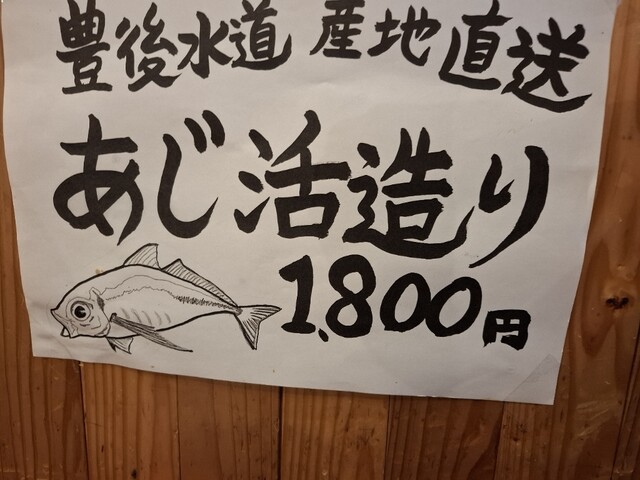 豊後水道 産地直送
あじ活造り
1,800円